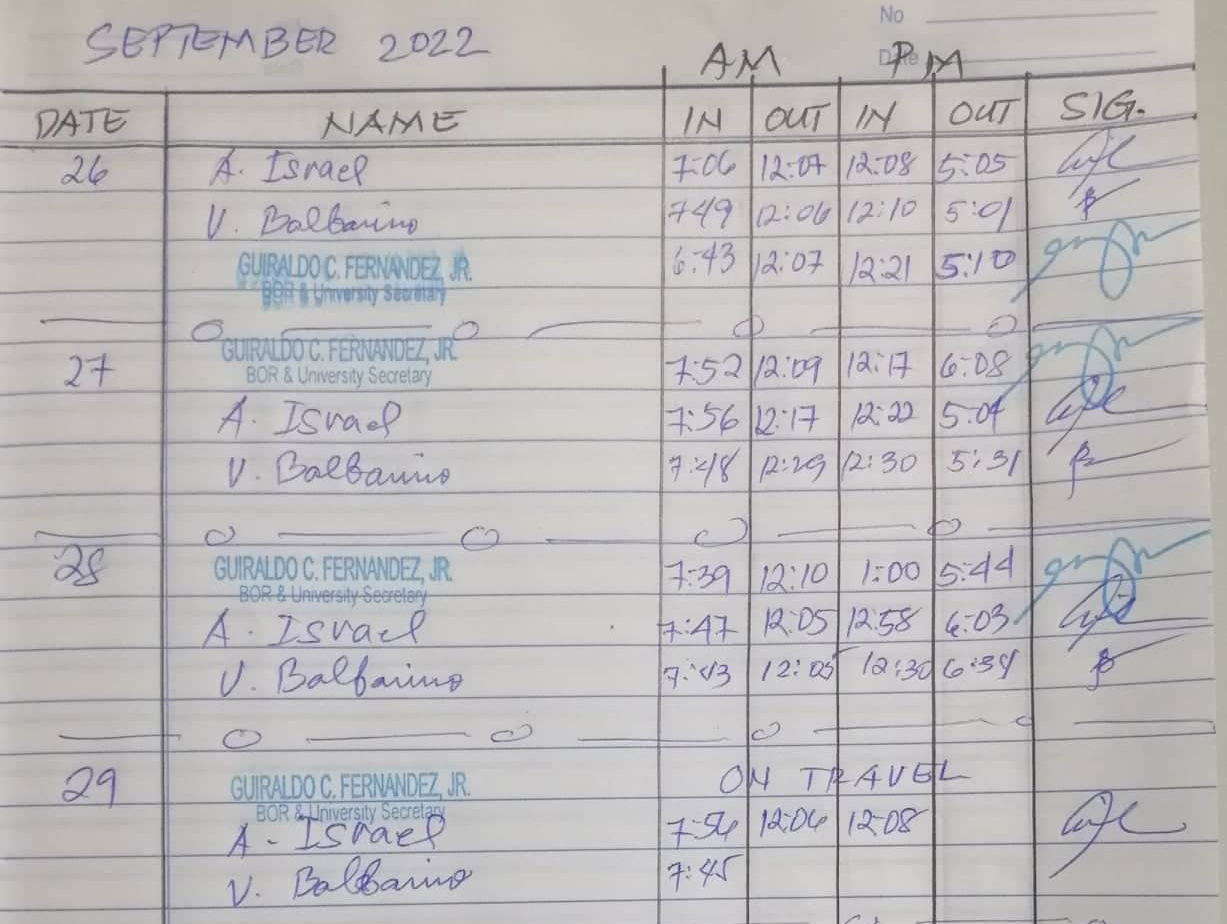 No
SEPTEMBER 2022
Date
AM PM
DATE NAME IN OUT IN OUT SIG.
26 A. Israel 7:06 12:07 12:08 5:05
V. Balbarino 749 12:06 12:10 5:01
GUIRALDO C. FERNANDEZ, JR. 6:43 12:07 12:21 5:10
BOR & University Secretary
27 GUIRALDO C. FERNANDEZ, JR. 7:52 12:09 12:17 6:08
BOR & University Secretary
A. Israel 7:56 12:17 12:22 5:04
V. Balbarino 7:48 12:29 12:30 5:31
28 GUIRALDO C. FERNANDEZ, JR. 7:39 12:10 1:00 5:44
BOR & University Secretary
A. Israel 7:47 12:05 12:58 6:03
V. Balbarino 7:43 12:05 12:30
29 GUIRALDO C. FERNANDEZ, JR. ON TRAVEL
BOR & University Secretary
A. Israel 7:56 12:06 12:08
V. Balbarino 7:45